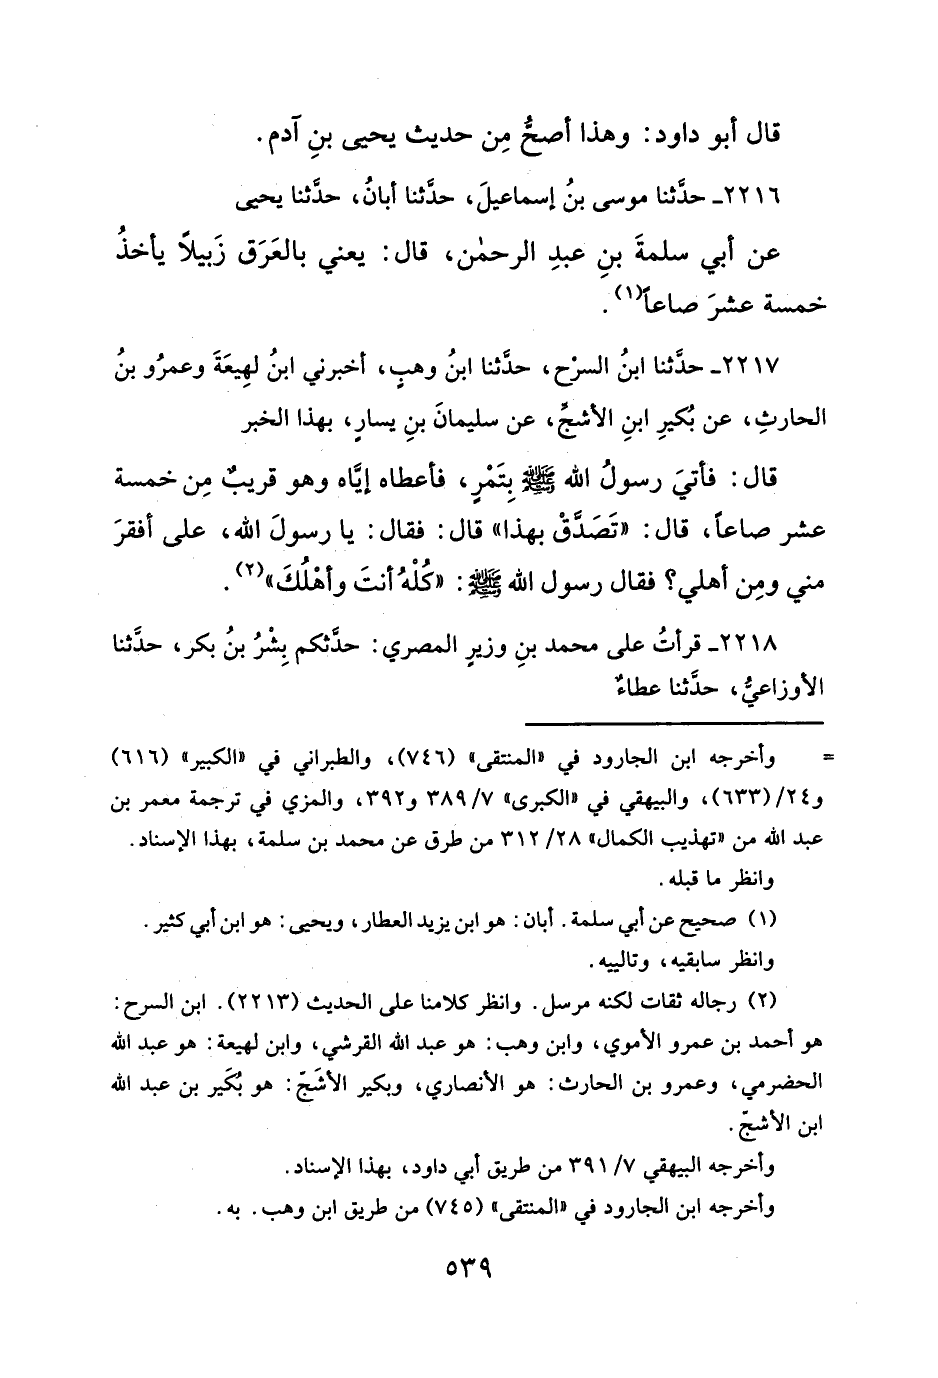 قال أبو داود: وهذا أصحُّ مِن حديث يحيى بنِ آدم.
٢٢١٦ـ حدَّثنا موسى بنُ إسماعيلَ، حدَّثنا أبانُ، حدَّثنا يحيى
عن أبي سلمةَ بنِ عبدِ الرحمٰن، قال: يعني بالعَرَق زَبيلاً يأخذُ
خمسة عشرَ صاعاً(١).
٢٢١٧ـ حدَّثنا ابنُ السرْح، حدَّثنا ابنُ وهبٍ، أخبرني ابنُ لهِيعَةَ وعمرُو بنُ
الحارثِ، عن بُكيرِ ابنِ الأشجِّ، عن سليمانَ بنِ يسارٍ، بهذا الخبر
قال: فأتيَ رسولُ الله ﷺ بِتَمْرٍ، فأعطاه إيَّاه وهو قريبٌ مِن خمسة
عشر صاعاً، قال: «تَصَدَّقْ بهذا» قال: فقال: يا رسولَ الله، على أفقرَ
مني ومِن أهلي؟ فقال رسول الله ﷺ: «كُلْهُ أنتَ وأهْلُكَ»(٢).
٢٢١٨ـ قرأتُ على محمد بنِ وزيرٍ المصري: حدَّثكم بِشْرُ بنُ بكر، حدَّثنا
الأوزاعيُّ، حدَّثنا عطاءٌ
= وأخرجه ابن الجارود في «المنتقى» (٧٤٦)، والطبراني في «الكبير» (٦١٦)
و٢٤/(٦٣٣)، والبيهقي في «الكبرى» ٧/ ٣٨٩ و٣٩٢، والمزي في ترجمة معمر بن
عبد الله من «تهذيب الكمال» ٢٨/ ٣١٢ من طرق عن محمد بن سلمة، بهذا الإسناد.
وانظر ما قبله.
(١) صحيح عن أبي سلمة. أبان: هو ابن يزيد العطار، ويحيى: هو ابن أبي كثير.
وانظر سابقيه، وتالييه.
(٢) رجاله ثقات لكنه مرسل. وانظر كلامنا على الحديث (٢٢١٣). ابن السرح:
هو أحمد بن عمرو الأموي، وابن وهب: هو عبد الله القرشي، وابن لهيعة: هو عبد الله
الحضرمي، وعمرو بن الحارث: هو الأنصاري، وبكير الأشَجّ: هو بُكَير بن عبد الله
ابن الأشجّ.
وأخرجه البيهقي ٧/ ٣٩١ من طريق أبي داود، بهذا الإسناد.
وأخرجه ابن الجارود في «المنتقى» (٧٤٥) من طريق ابن وهب. به.
٥٣٩